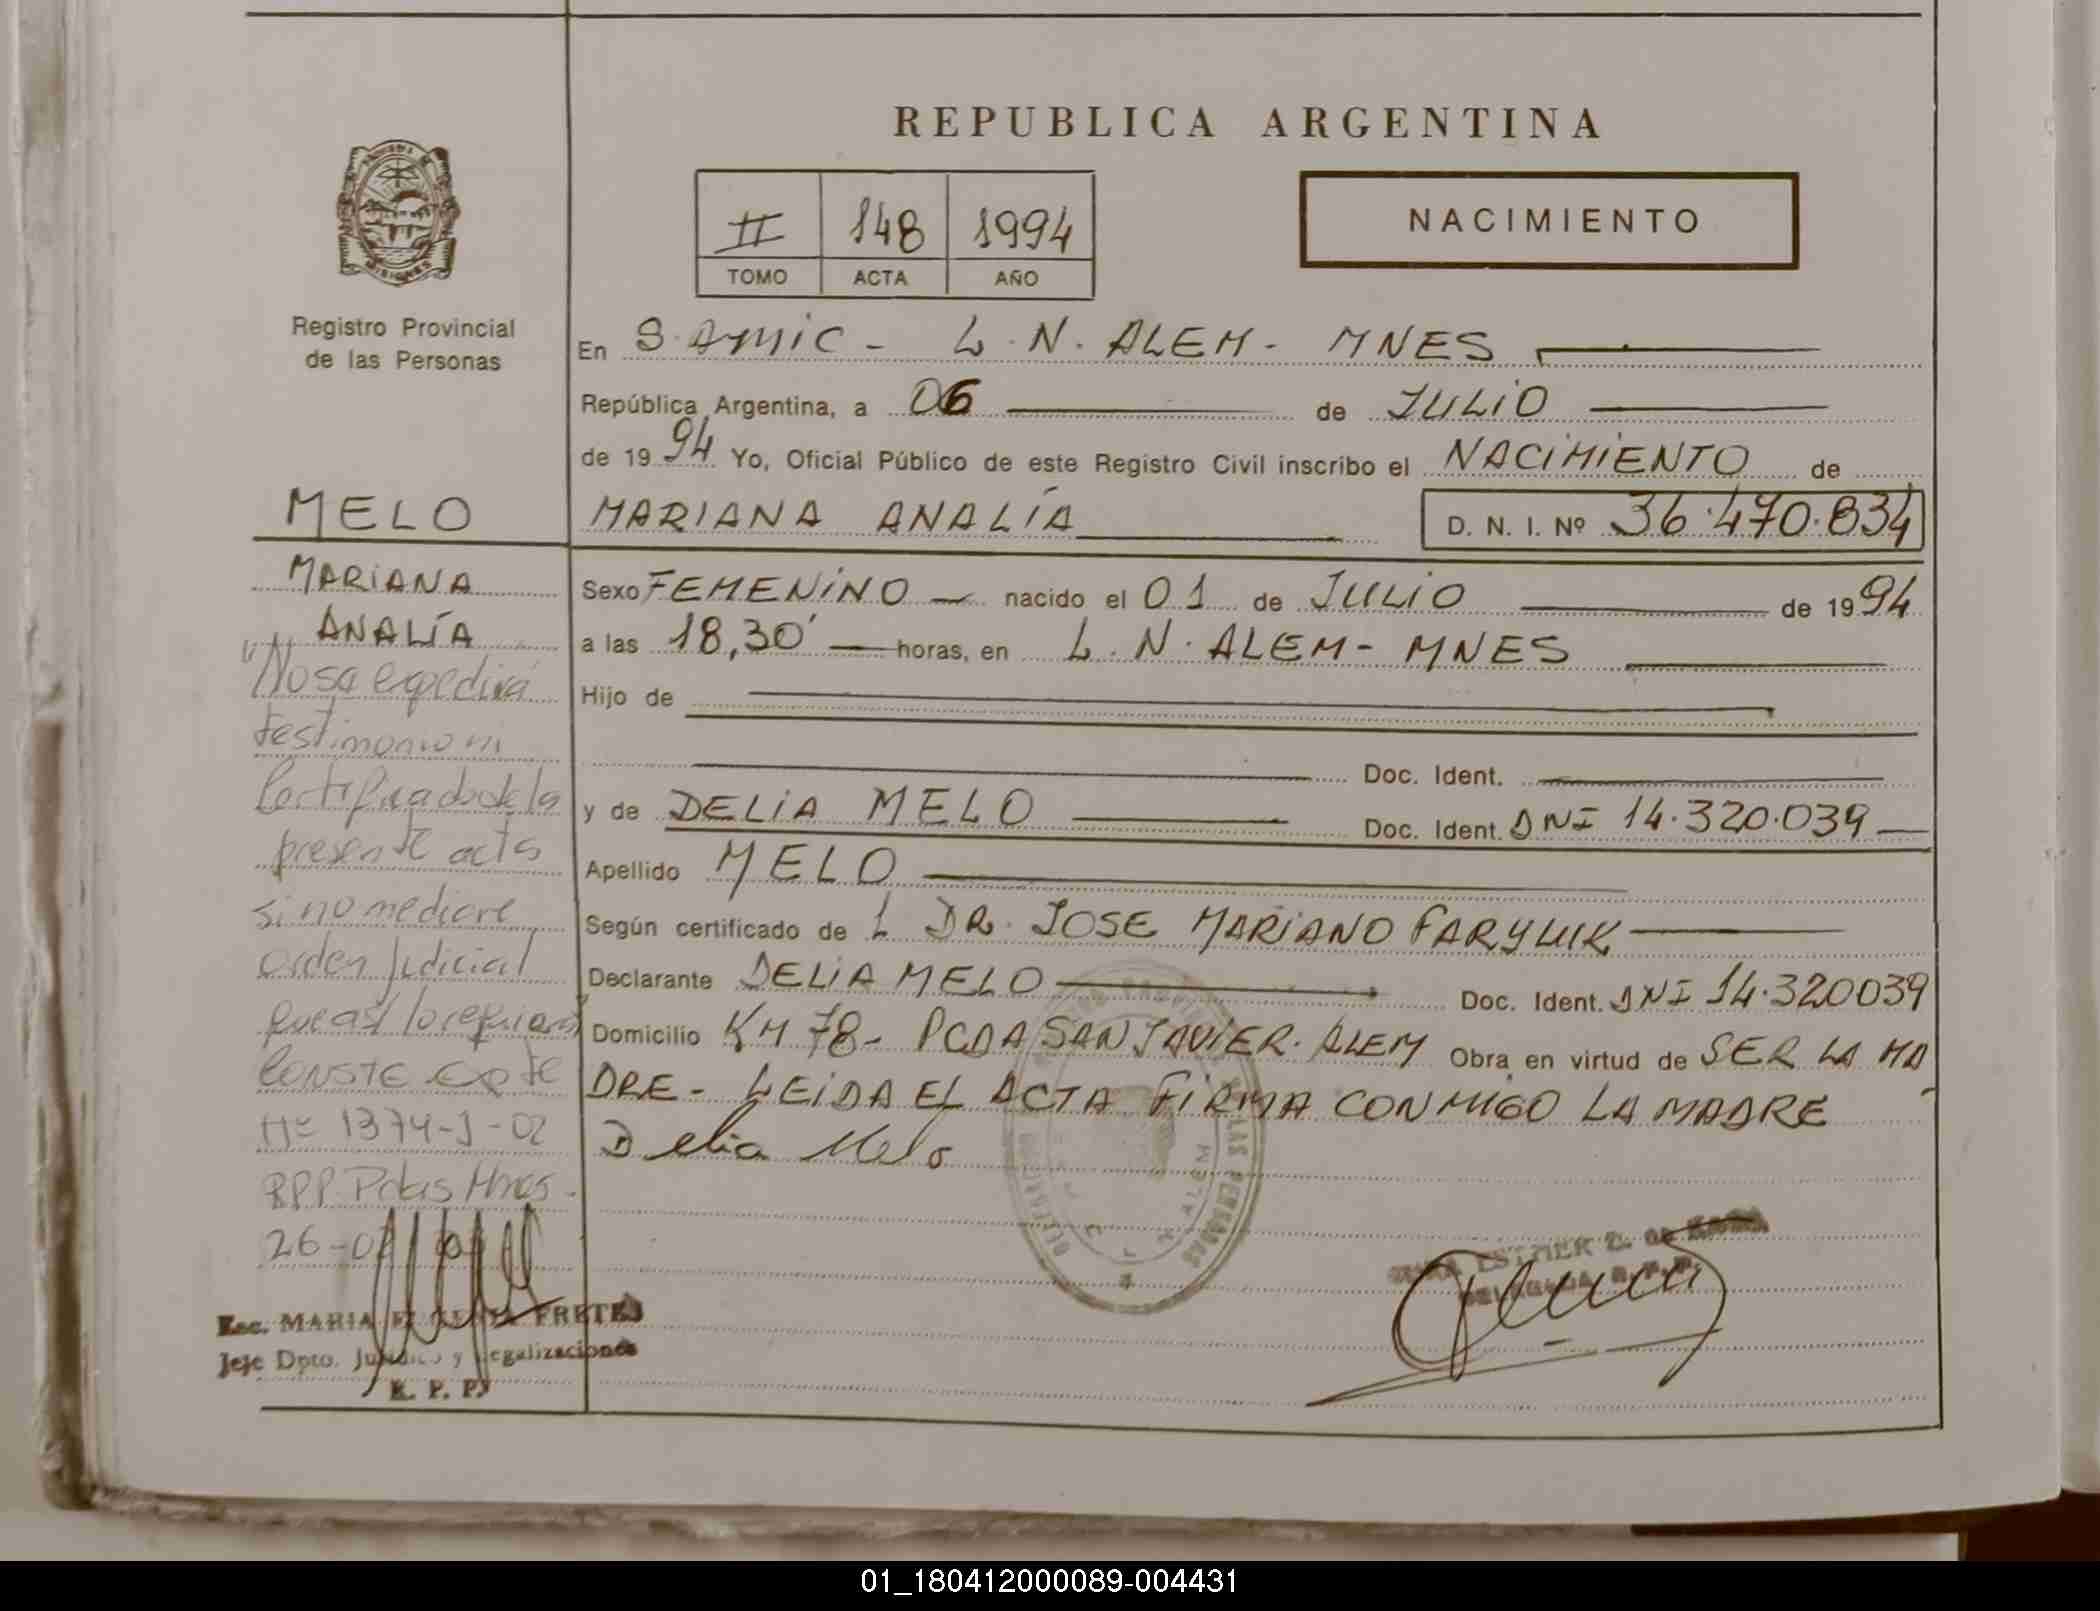 REPUBLICA ARGENTINA
II 148 1994
TOMO ACTA AÑO
NACIMIENTO
Registro Provincial
de las Personas
En S. AMIC - L. N. ALEM - MNES
República Argentina, a 06 de JULIO
de 1994 Yo, Oficial Público de este Registro Civil inscribo el NACIMIENTO de
MARIANA ANALÍA D. N. I. Nº 36.470.834
Sexo FEMENINO nacido el 01 de JULIO de 1994
a las 18,30' horas, en L. N. ALEM - MNES
Hijo de
Doc. Ident.
y de DELIA MELO Doc. Ident. DNI 14.320.039
Apellido MELO
Según certificado de L DR. JOSE MARIANO FARYLUK
Declarante DELIA MELO Doc. Ident. DNI 14.320039
Domicilio KM 78 - PCDA SAN JAVIER. ALEM Obra en virtud de SER LA MA
DRE - LEIDA EL ACTA FIRMA CONMIGO LA MADRE
Delia Melo
MELO
MARIANA
ANALÍA
"No se expedirá
testimonio ni
Certificado de la
presente acta
si no mediare
orden Judicial
que así lo requiera
CONSTE Expte
Nº 1374-J-02
RPP. Pdas Mnes.
26-0
Esc. MARIA EUGENIA FRETES
Jefe Dpto. Jurídico y Legalizaciones
R. P. P.
ESTHER
DELEGADA R. P. P.
01_180412000089-004431